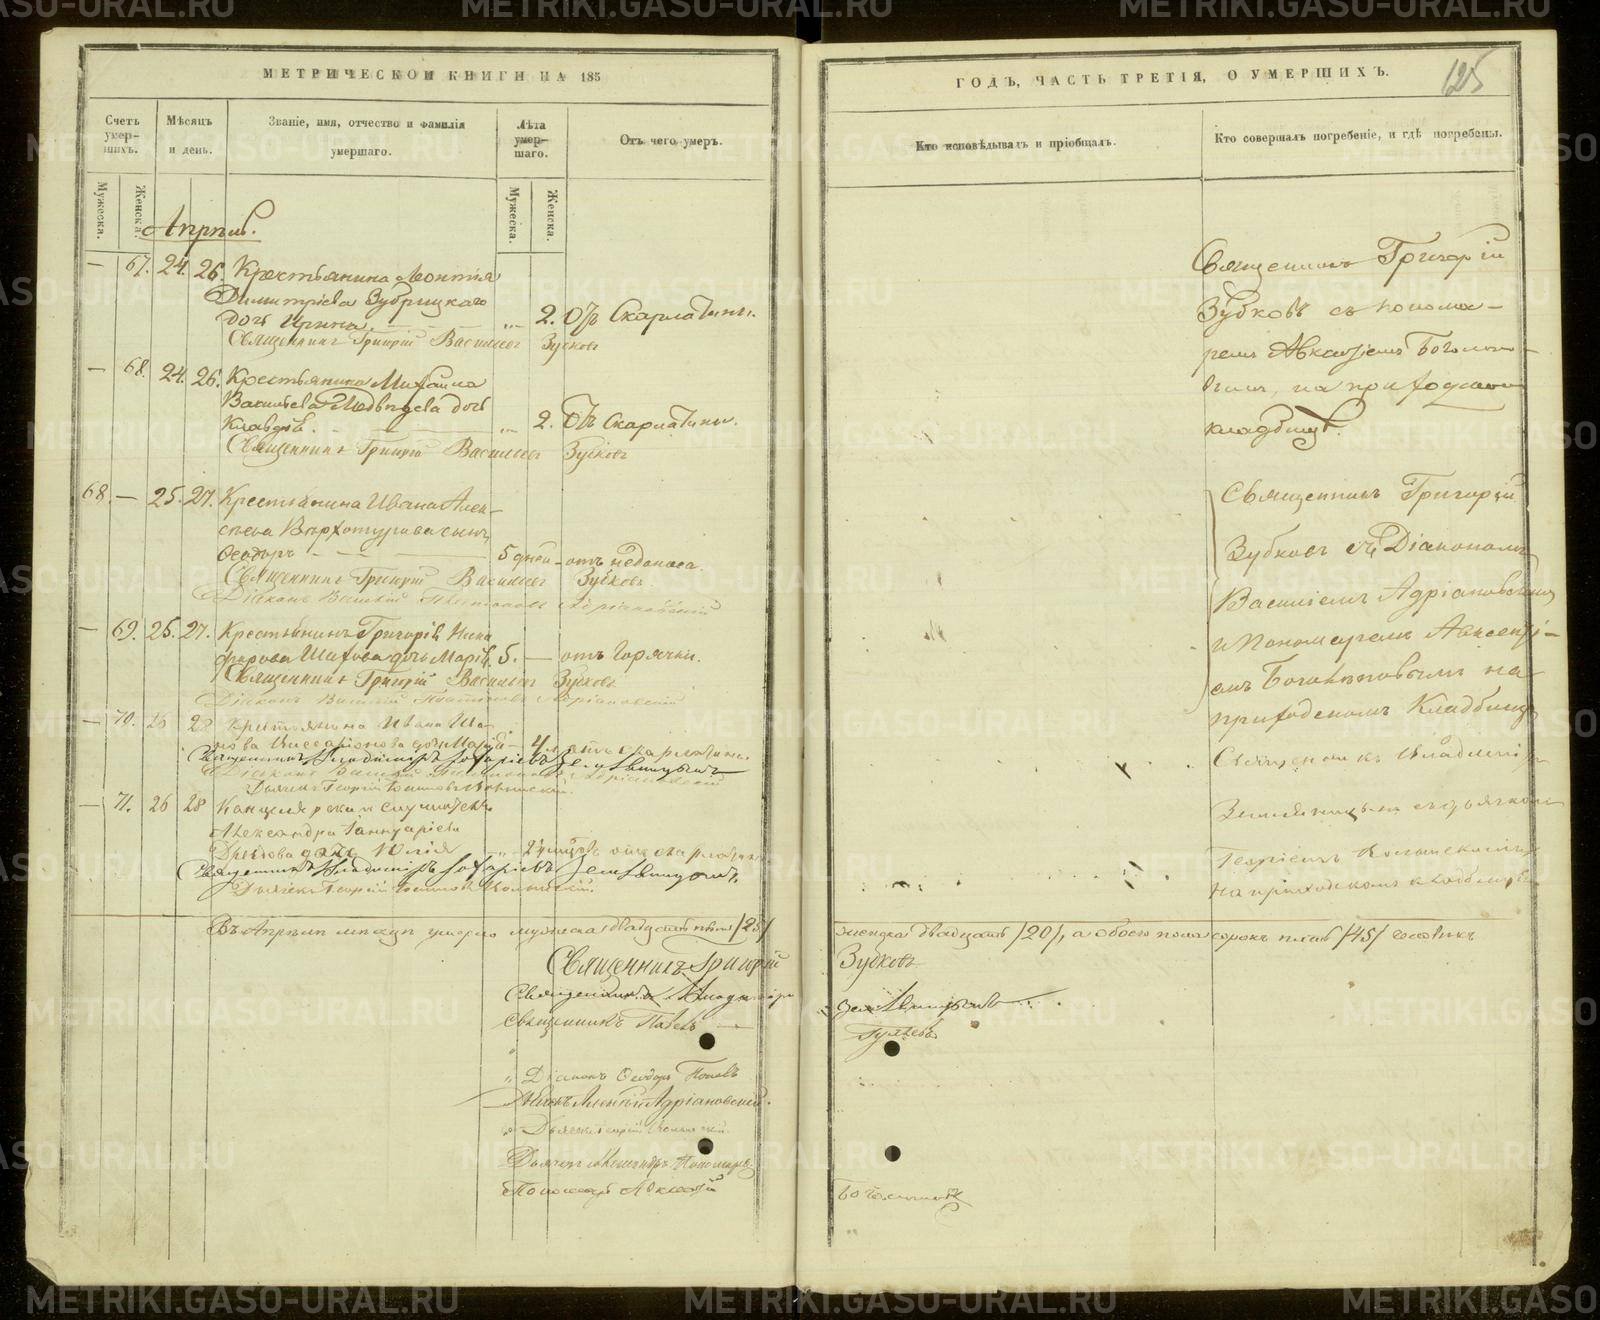 МЕТРИЧЕСКОЙ КНИГИ НА 185
Счетъ умер-шихъ.
Мѣсяцъ и день.
Званіе, имя, отчество и фамилія умершаго.
Лѣта умер-шаго.
Отъ чего умеръ.
Мужеска.
Женска.
Мужеска.
Женска.
Апрѣль.
— 67. 24. 26. Крестьянина Леонтія
Димитріева Зубрицкаго
дочь Ирина. — 2. Отъ Скарлатины.
Священникъ Григорій Васильевъ Зубковъ
— 68. 24. 26. Крестьянина Михаила
Васильева Медвѣдева дочь
Клавдія. — 2. Отъ Скарлатины.
Священникъ Григорій Васильевъ Зубковъ
68. — 25. 27. Крестьянина Ивана Алек-
сѣева Верхотурова сынъ
Ѳеодоръ — 5 дней — отъ недоноса.
Священникъ Григорій Васильевъ Зубковъ.
Діаконъ Василій Адріановскій
— 69. 25. 27. Крестьянина Григорія Ники
форова Шихова дочь Марія 5. — отъ Горячки.
Священникъ Григорій Васильевъ Зубковъ
Діаконъ Василій Адріановскій
— 70. 26 28 Крестьянина Ивана Ива
нова Виссаріонова дочь Марія — 4 отъ скарлатины
Священникъ Владиміръ Захаріевъ Земляницынъ
Діаконъ Василій Адріановскій
Дьячекъ Георгій
— 71. 26 28 Канцелярскаго служителя
Александра Іаннуаріева
дочь Юлія отъ скарлатины
Священникъ Владиміръ Захаріевъ Земляницынъ.
Дьячекъ Георгій
Въ Апрѣлѣ мѣсяцѣ умерло мужеска двадцать пять /25/
Священникъ Григорій
Священникъ Владиміръ
Священникъ Павелъ —
Діаконъ Ѳеодоръ Поповъ
Адріановскій.
Дьячекъ Георгій
Дьячекъ Александръ Пономаревъ
Пономарь Авксентій
ГОДЪ, ЧАСТЬ ТРЕТІЯ, О УМЕРШИХЪ.
125
Кто исповѣдывалъ и пріобщалъ.
Кто совершалъ погребеніе, и гдѣ погребены.
Священникъ Григорій
Зубковъ съ понома-
ремъ Авксентіемъ Богомо-
ловымъ, на приходскомъ
кладбищѣ.
Священникъ Григорій
Зубковъ съ Діакономъ
Василіемъ Адріановскимъ
и Пономаремъ Авксенті-
емъ Богомоловымъ на
приходскомъ Кладбищѣ
Священникъ Владиміръ
Земляницынъ съ дьячкомъ
Георгіемъ
на приходскомъ кладбищѣ
женска двадцать /20/, а обоего пола сорокъ пять /45/ человѣкъ
Зубковъ
Земляницынъ
Гуляевъ
Богомоловъ
METRIKI.GASO-URAL.RU